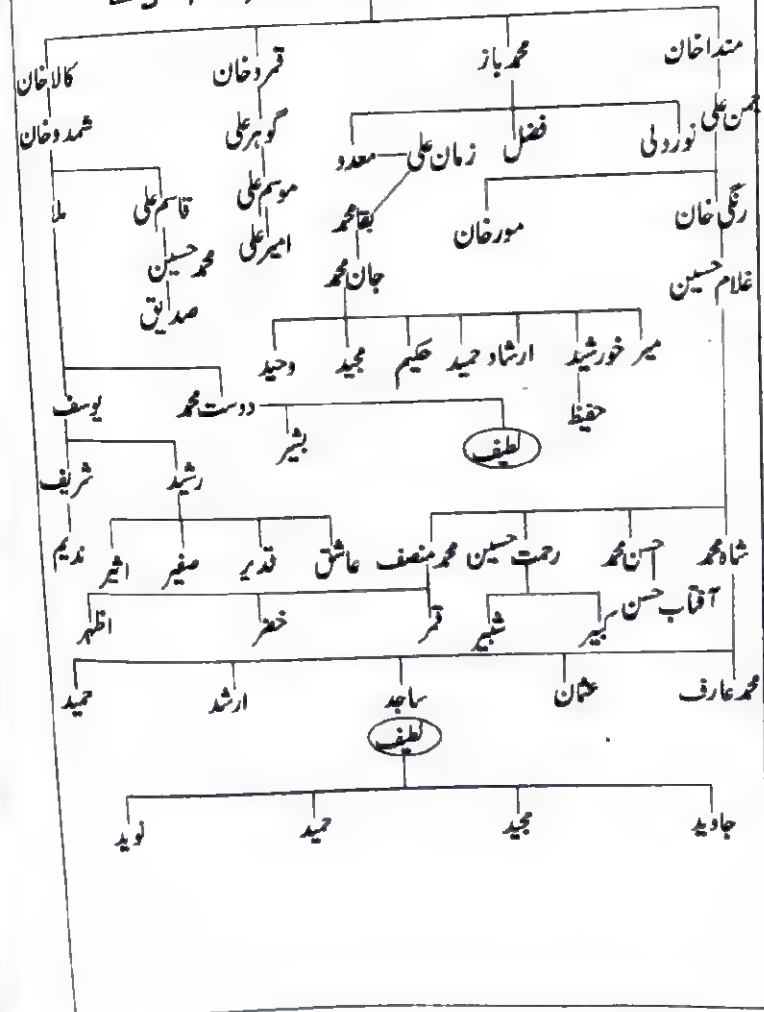 منداخان محمد باز قمروخان کالاخان
جمن علی نوردلی فضل زمان علی معدو گوہر علی شمدوخان
رنگی خان مورخان بقا محمد موسم علی قاسم علی ملا
غلام حسین جان محمد امیر علی محمد حسین
صدیق
میر خورشید ارشاد حمید حکیم مجید وحید
حفیظ دوست محمد یوسف
لطیف بشیر
رشید شریف
شاہ محمد حسن محمد رحمت حسین محمد منصف عاشق قدیر صغیر اثیر ندیم
آفتاب حسن کبیر شبیر قمر خضر اظہر
محمد عارف عثمان ساجد ارشد حمید
لطیف
جاوید مجید حمید نوید